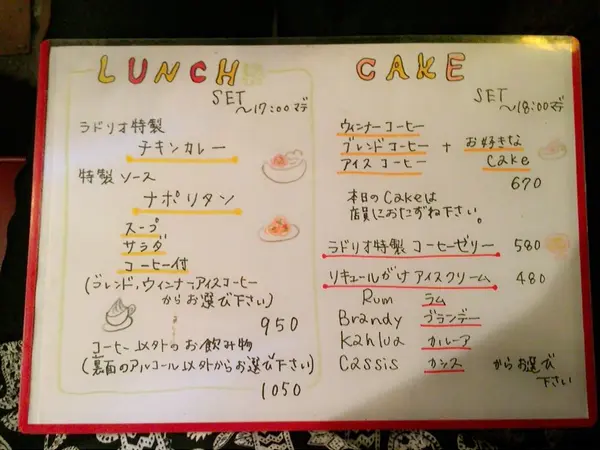 LUNCH
SET
～17:00マデ
ラドリオ特製
チキンカレー
特製ソース
ナポリタン
スープ
サラダ
コーヒー付
(ブレンド,ウィンナー,アイスコーヒー
からお選び下さい)
950
コーヒー以外のお飲み物
(裏面のアルコール以外からお選び下さい)
1050
CAKE
SET
～18:00マデ
ウィンナーコーヒー
ブレンドコーヒー + お好きな
アイスコーヒー Cake
670
本日のCakeは
店員におたずね下さい。
ラドリオ特製 コーヒーゼリー 580
リキュールがけアイスクリーム 480
Rum ラム
Brandy ブランデー
Kahlua カルーア
Cassis カシス からお選び
下さい